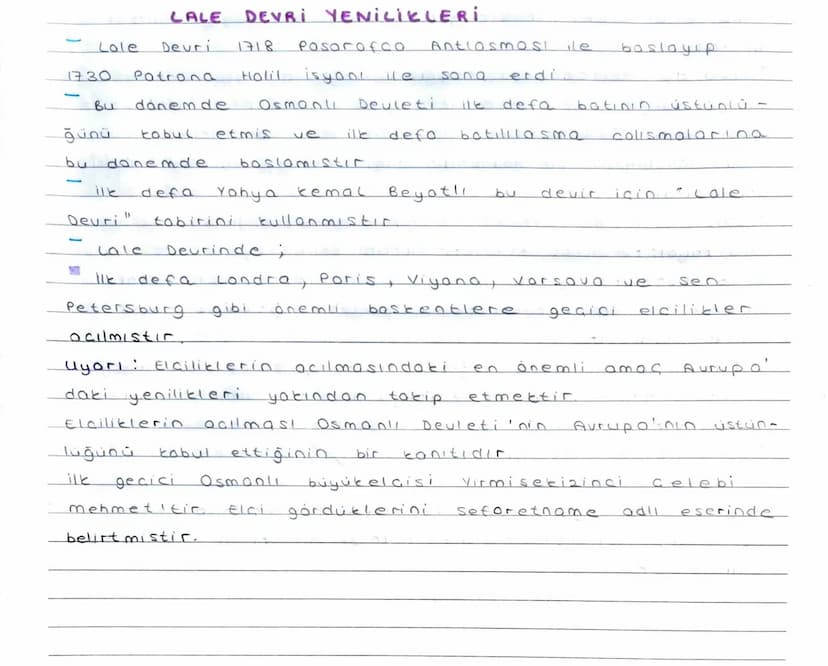 LALE DEVRİ YENİLİKLERİ
- Lale Devri 1718 Pasarofca Antlasması ile baslayıp
1730 Patrona Halil İsyanı ile sona erdi
- Bu dönemde Osmanlı Devleti ilk defa batının üstünlü-
ğünü kabul etmis ve ilk defa batılılasma calısmalarına
bu dönemde baslamıstır
- İlk defa Yahya Kemal Beyatlı bu devir icin "Lale
Devri" tabirini kullanmıstır
- Lale Devrinde ;
İlk defa Londra, Paris, Viyana, Varsova ve Sen
Petersburg gibi önemli baskentlere gecici elcilikler
acılmıstır.
Uyarı : Elciliklerin acılmasındaki en önemli amaç Avrupa'
daki yenilikleri yakından takip etmektir
Elciliklerin acılması Osmanlı Devleti'nin Avrupa'nın üstün-
luğünü kabul ettiğinin bir kanıtıdır
İlk gecici Osmanlı büyükelcisi Yirmisekizinci Celebi
mehmet'tir. Elci gördüklerini sefaretname adlı eserinde
belirtmistir.